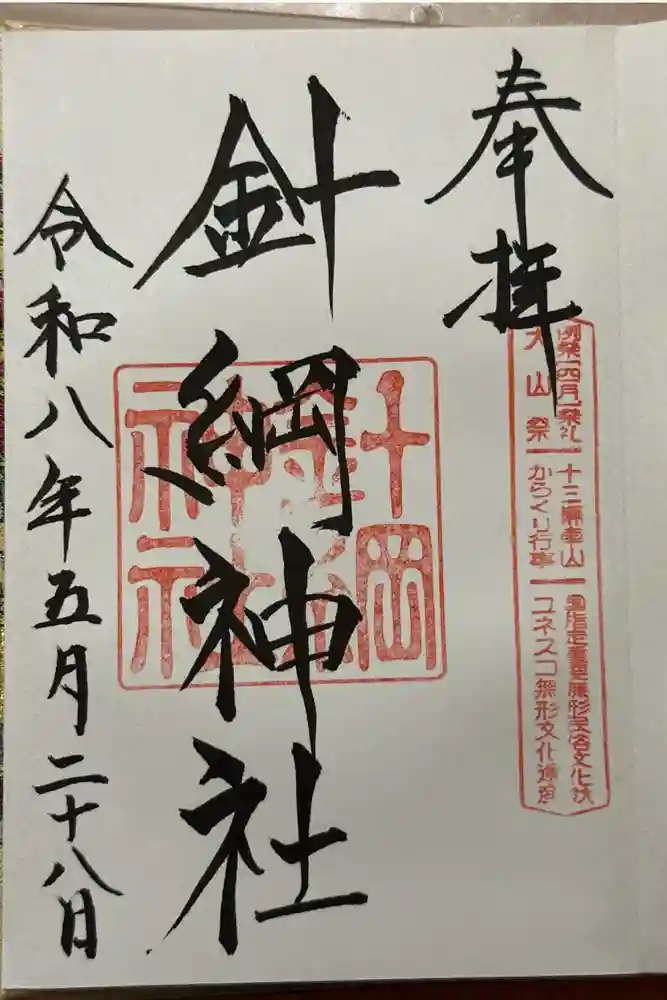 奉拝
例祭「四月」祭礼
犬山祭
十三輛車山
からくり行事
国指定重要無形民俗文化財
ユネスコ無形文化遺産
針綱神社
針綱神社
令和八年五月二十八日